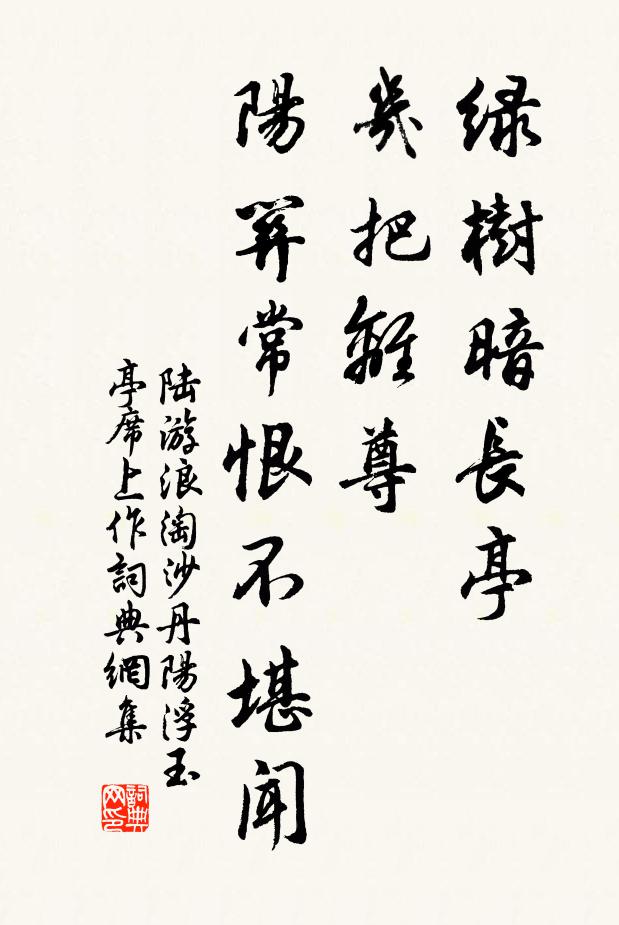 緑樹暗長亭
幾把離尊
陽關常恨不堪聞
陸游浪淘沙丹陽浮玉
亭席上作詞典網集
詞典
网印